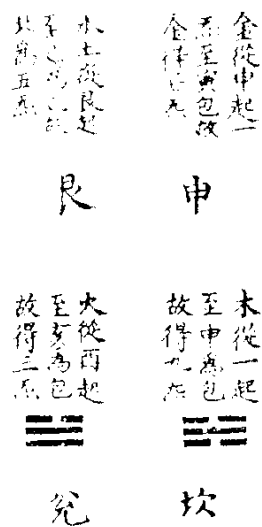 金從申起一
炁至寅包故
金得炁
申
水土從艮起
至為
五炁
艮
木從一起
至申為包
故得九炁
坎
火從酉起
至亥為包
故得三炁
兌